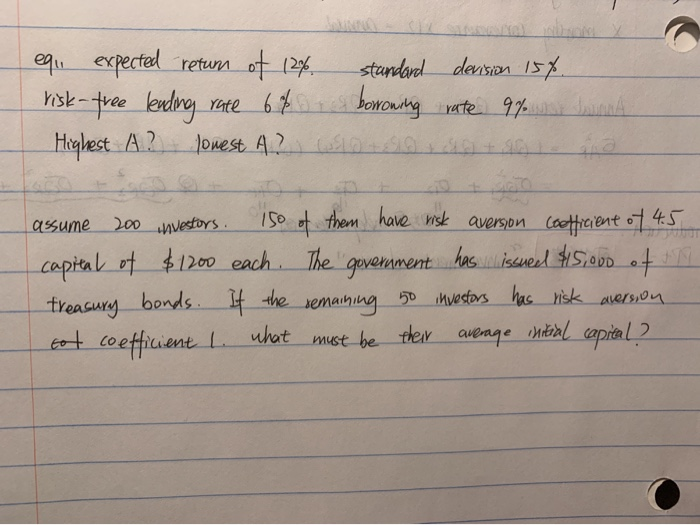 eq., expected return of 12%. standard devision 15%.
risk-free lending rate 6% borrowing rate 9%
Highest A? lowest A?
assume 200 investors. 150 of them have risk aversion coefficient of 4.5
capital of $1200 each. The government has issued $15,000 of
treasury bonds. If the remaining 50 investors has risk aversion
cot coefficient 1. what must be their average initial capital?